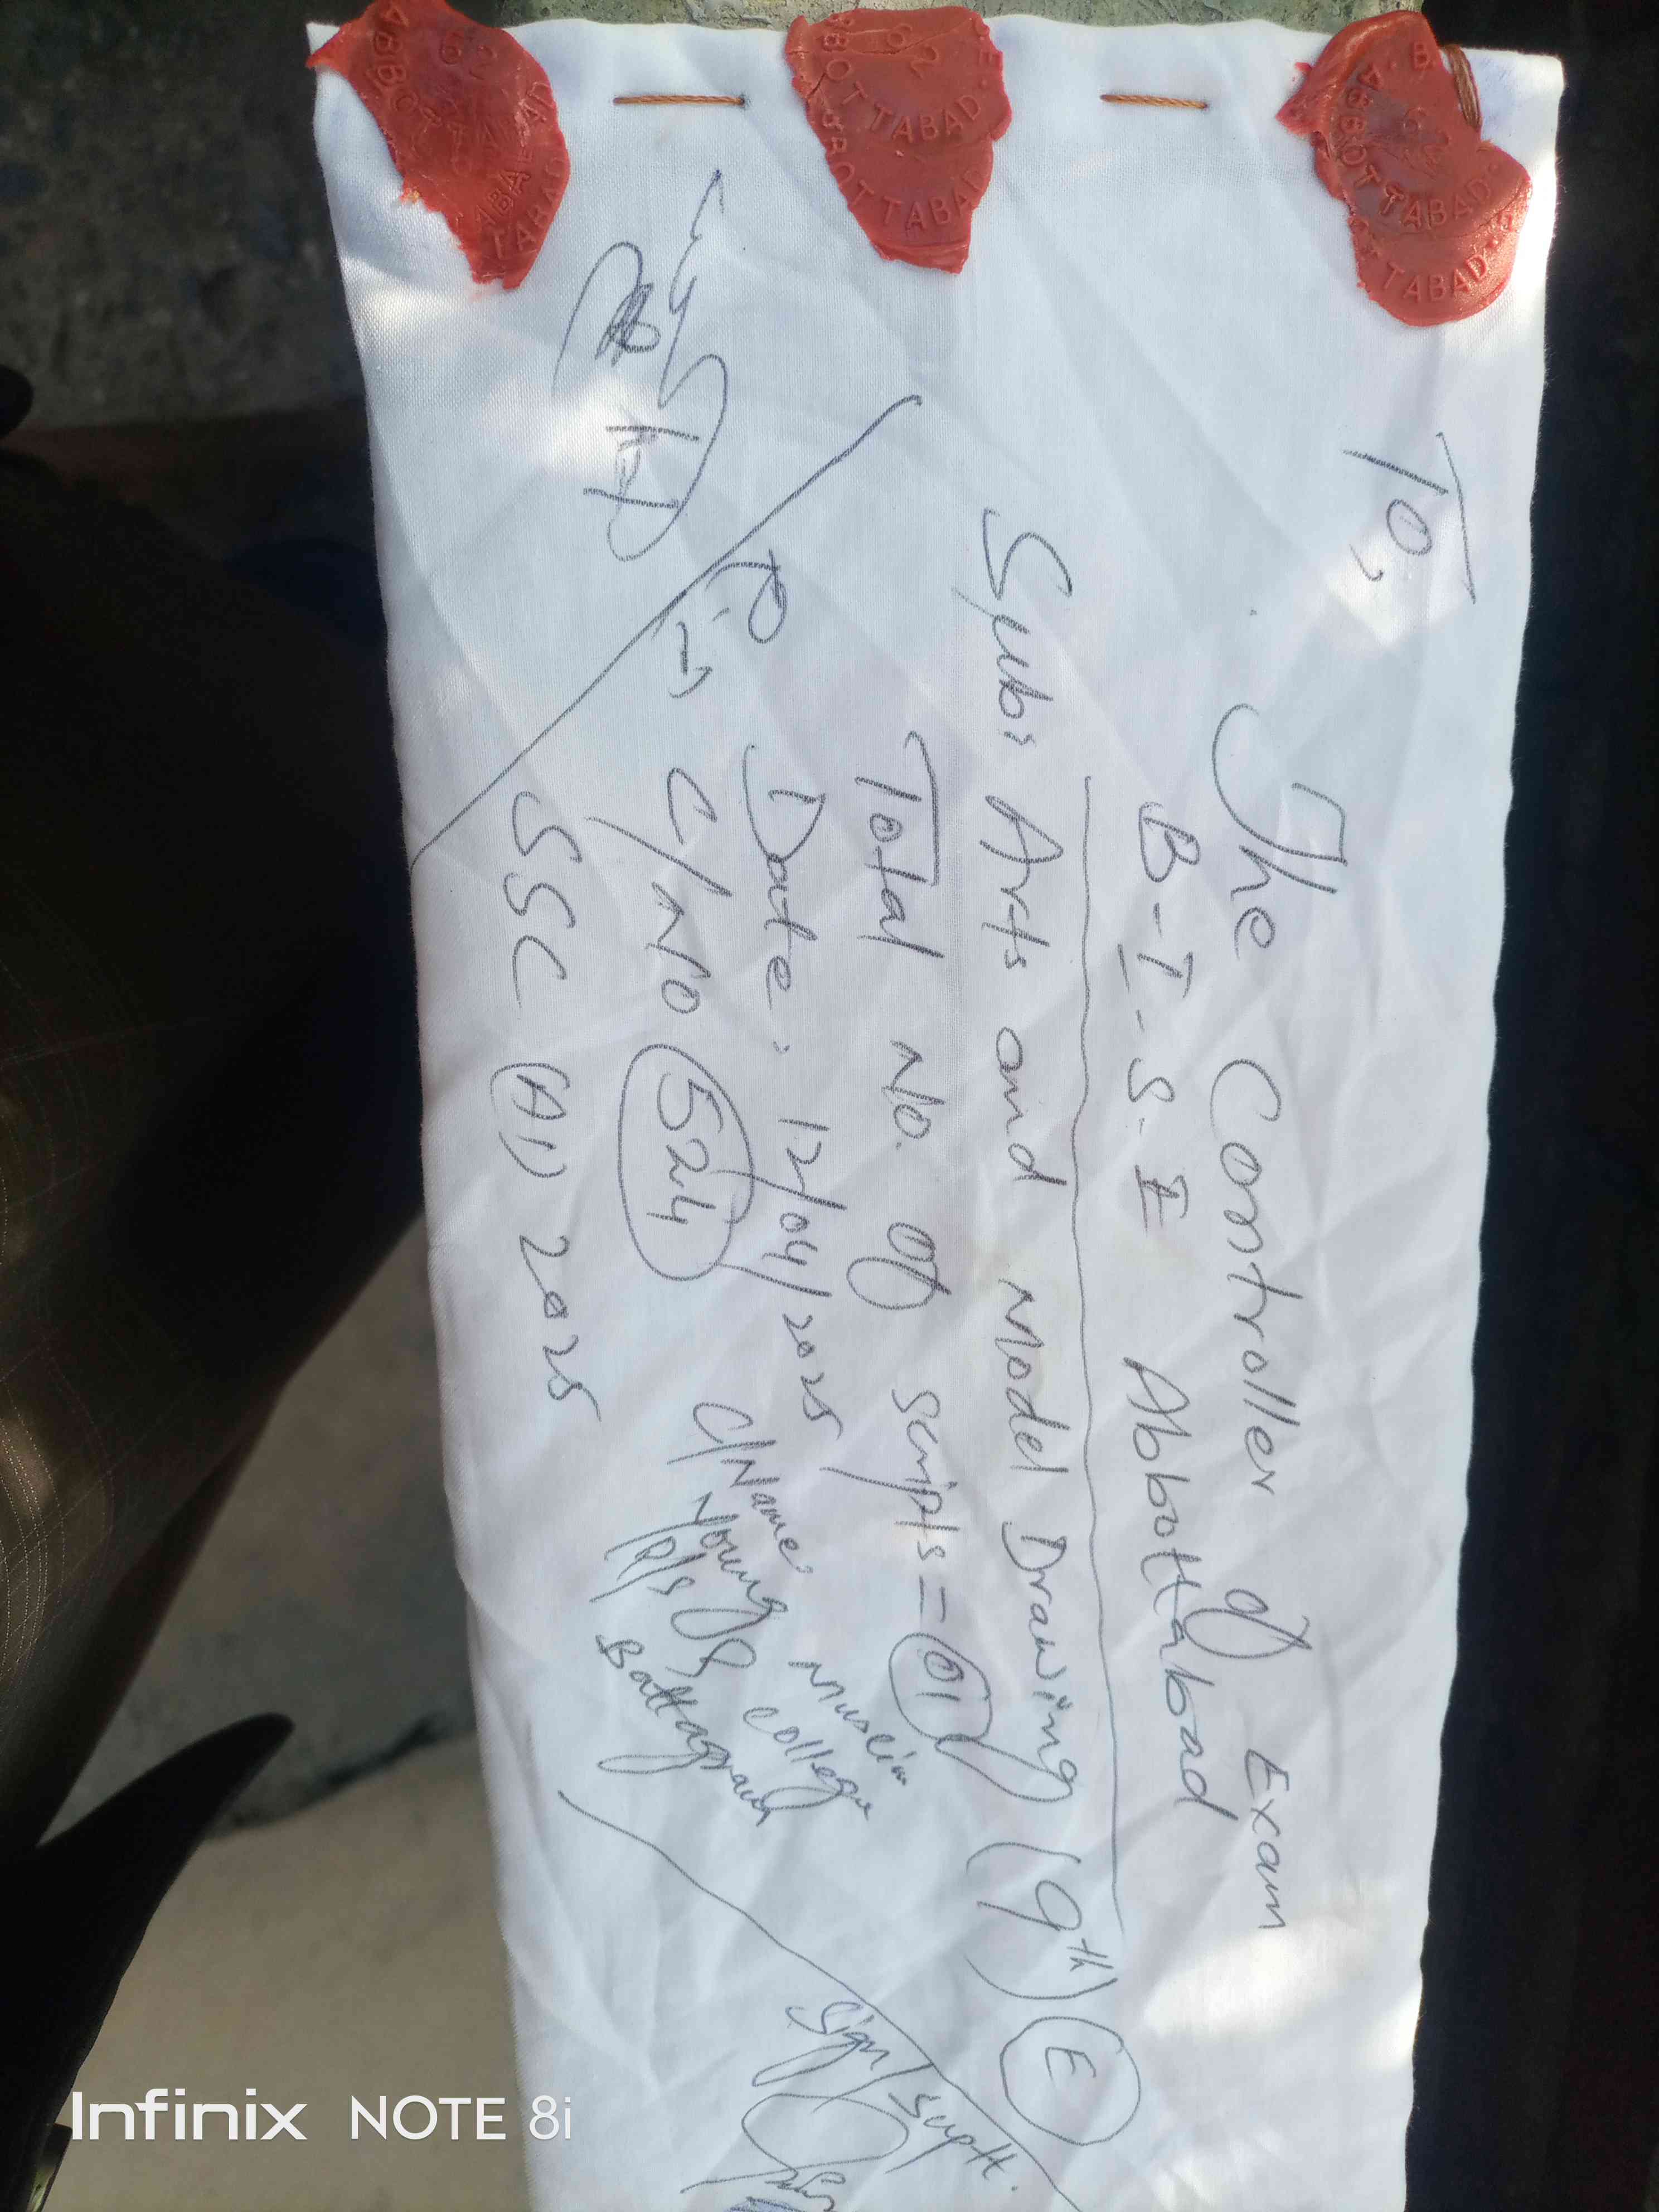 To,
The Controller of Exam
B-I-S-E Abbottabad
Sub: Arts and Model Drawing (9th) E
Total No. of Scripts = 01
Date: 12/04/2025
C/No 524
SSC (A1) 2025
C/Name: Muslim
Young college
P/S Battagram
Sign/Supdt.
62
ABBOTTABAD
TABAD
62
BBOTTABAD
OTTABAD
B.
62
ABBOTTABAD
OTTABAD
Infinix NOTE 8i